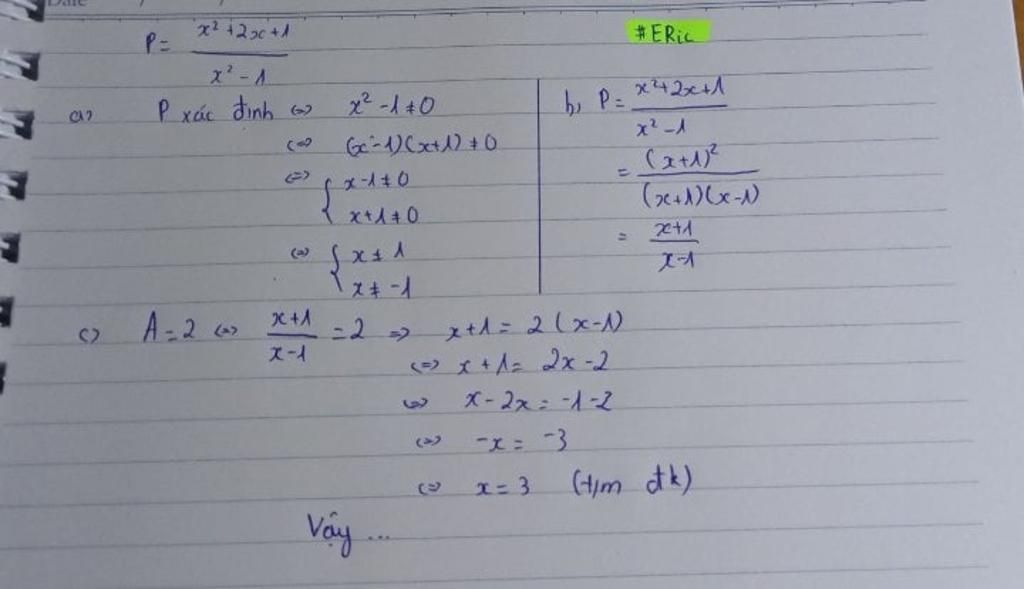 Date
P = \frac{x² + 2x + 1}{x² - 1}
#ERic
a) P xác định <=> x² - 1 ≠ 0
<=> (x - 1)(x + 1) ≠ 0
<=> { x - 1 ≠ 0
x + 1 ≠ 0
<=> { x ≠ 1
x ≠ -1
b, P = \frac{x² + 2x + 1}{x² - 1}
= \frac{(x + 1)²}{(x + 1)(x - 1)}
= \frac{x + 1}{x - 1}
c) A = 2 <=> \frac{x + 1}{x - 1} = 2 => x + 1 = 2(x - 1)
<=> x + 1 = 2x - 2
<=> x - 2x = -1 - 2
<=> -x = -3
<=> x = 3 (t/m đk)
Vậy ...